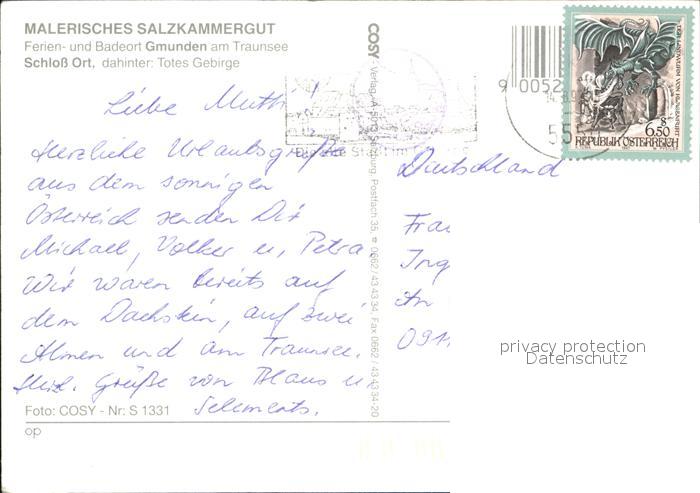 MALERISCHES SALZKAMMERGUT
Ferien- und Badeort Gmunden am Traunsee
Schloß Ort, dahinter: Totes Gebirge
Liebe Mutti!
Herzliche Urlaubsgrüße
aus dem sonnigen
Österreich senden Dir
Michael, Volker u. Petra
Wir waren bereits auf
dem Dachstein, auf zwei
Almen und am Traunsee.
Herzl. Grüße von Klaus u.
Foto: COSY - Nr: S 1331
op
COSY - Verlag, A-5013 Salzburg, Postfach 35, ☎ 0662/43 43 34, Fax 0662/43 43 34-20
9 0052
DER LINDWURM VON KLAGENFURT
S
6.50
REPUBLIK ÖSTERREICH
Deutschland
Frau
Ing
An
091
privacy protection
Datenschutz